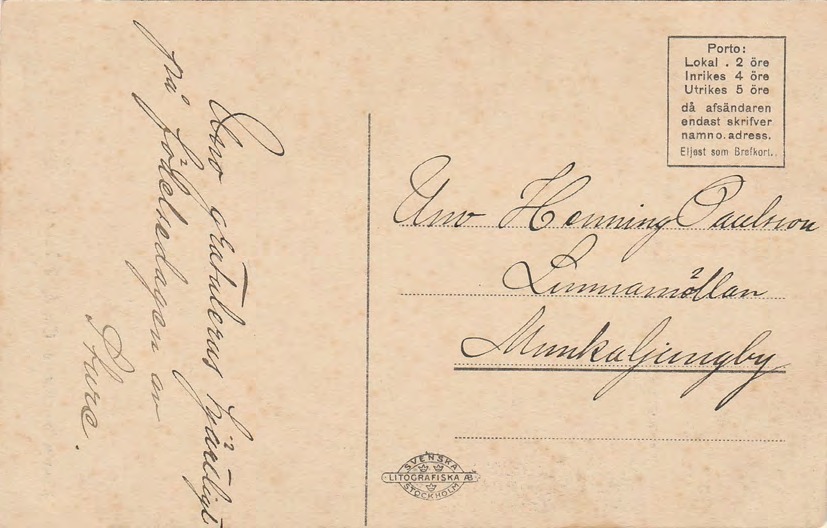 Unv gratuleras hjärtligt
på födelsedagen av
Sture.
Porto:
Lokal . 2 öre
Inrikes 4 öre
Utrikes 5 öre
då afsändaren
endast skrifver
namn o. adress.
Eljest som Brefkort.
Unv Henning Paulsson
Linnamöllan
Munkaljungby
SVENSKA
LITOGRAFISKA AB
STOCKHOLM